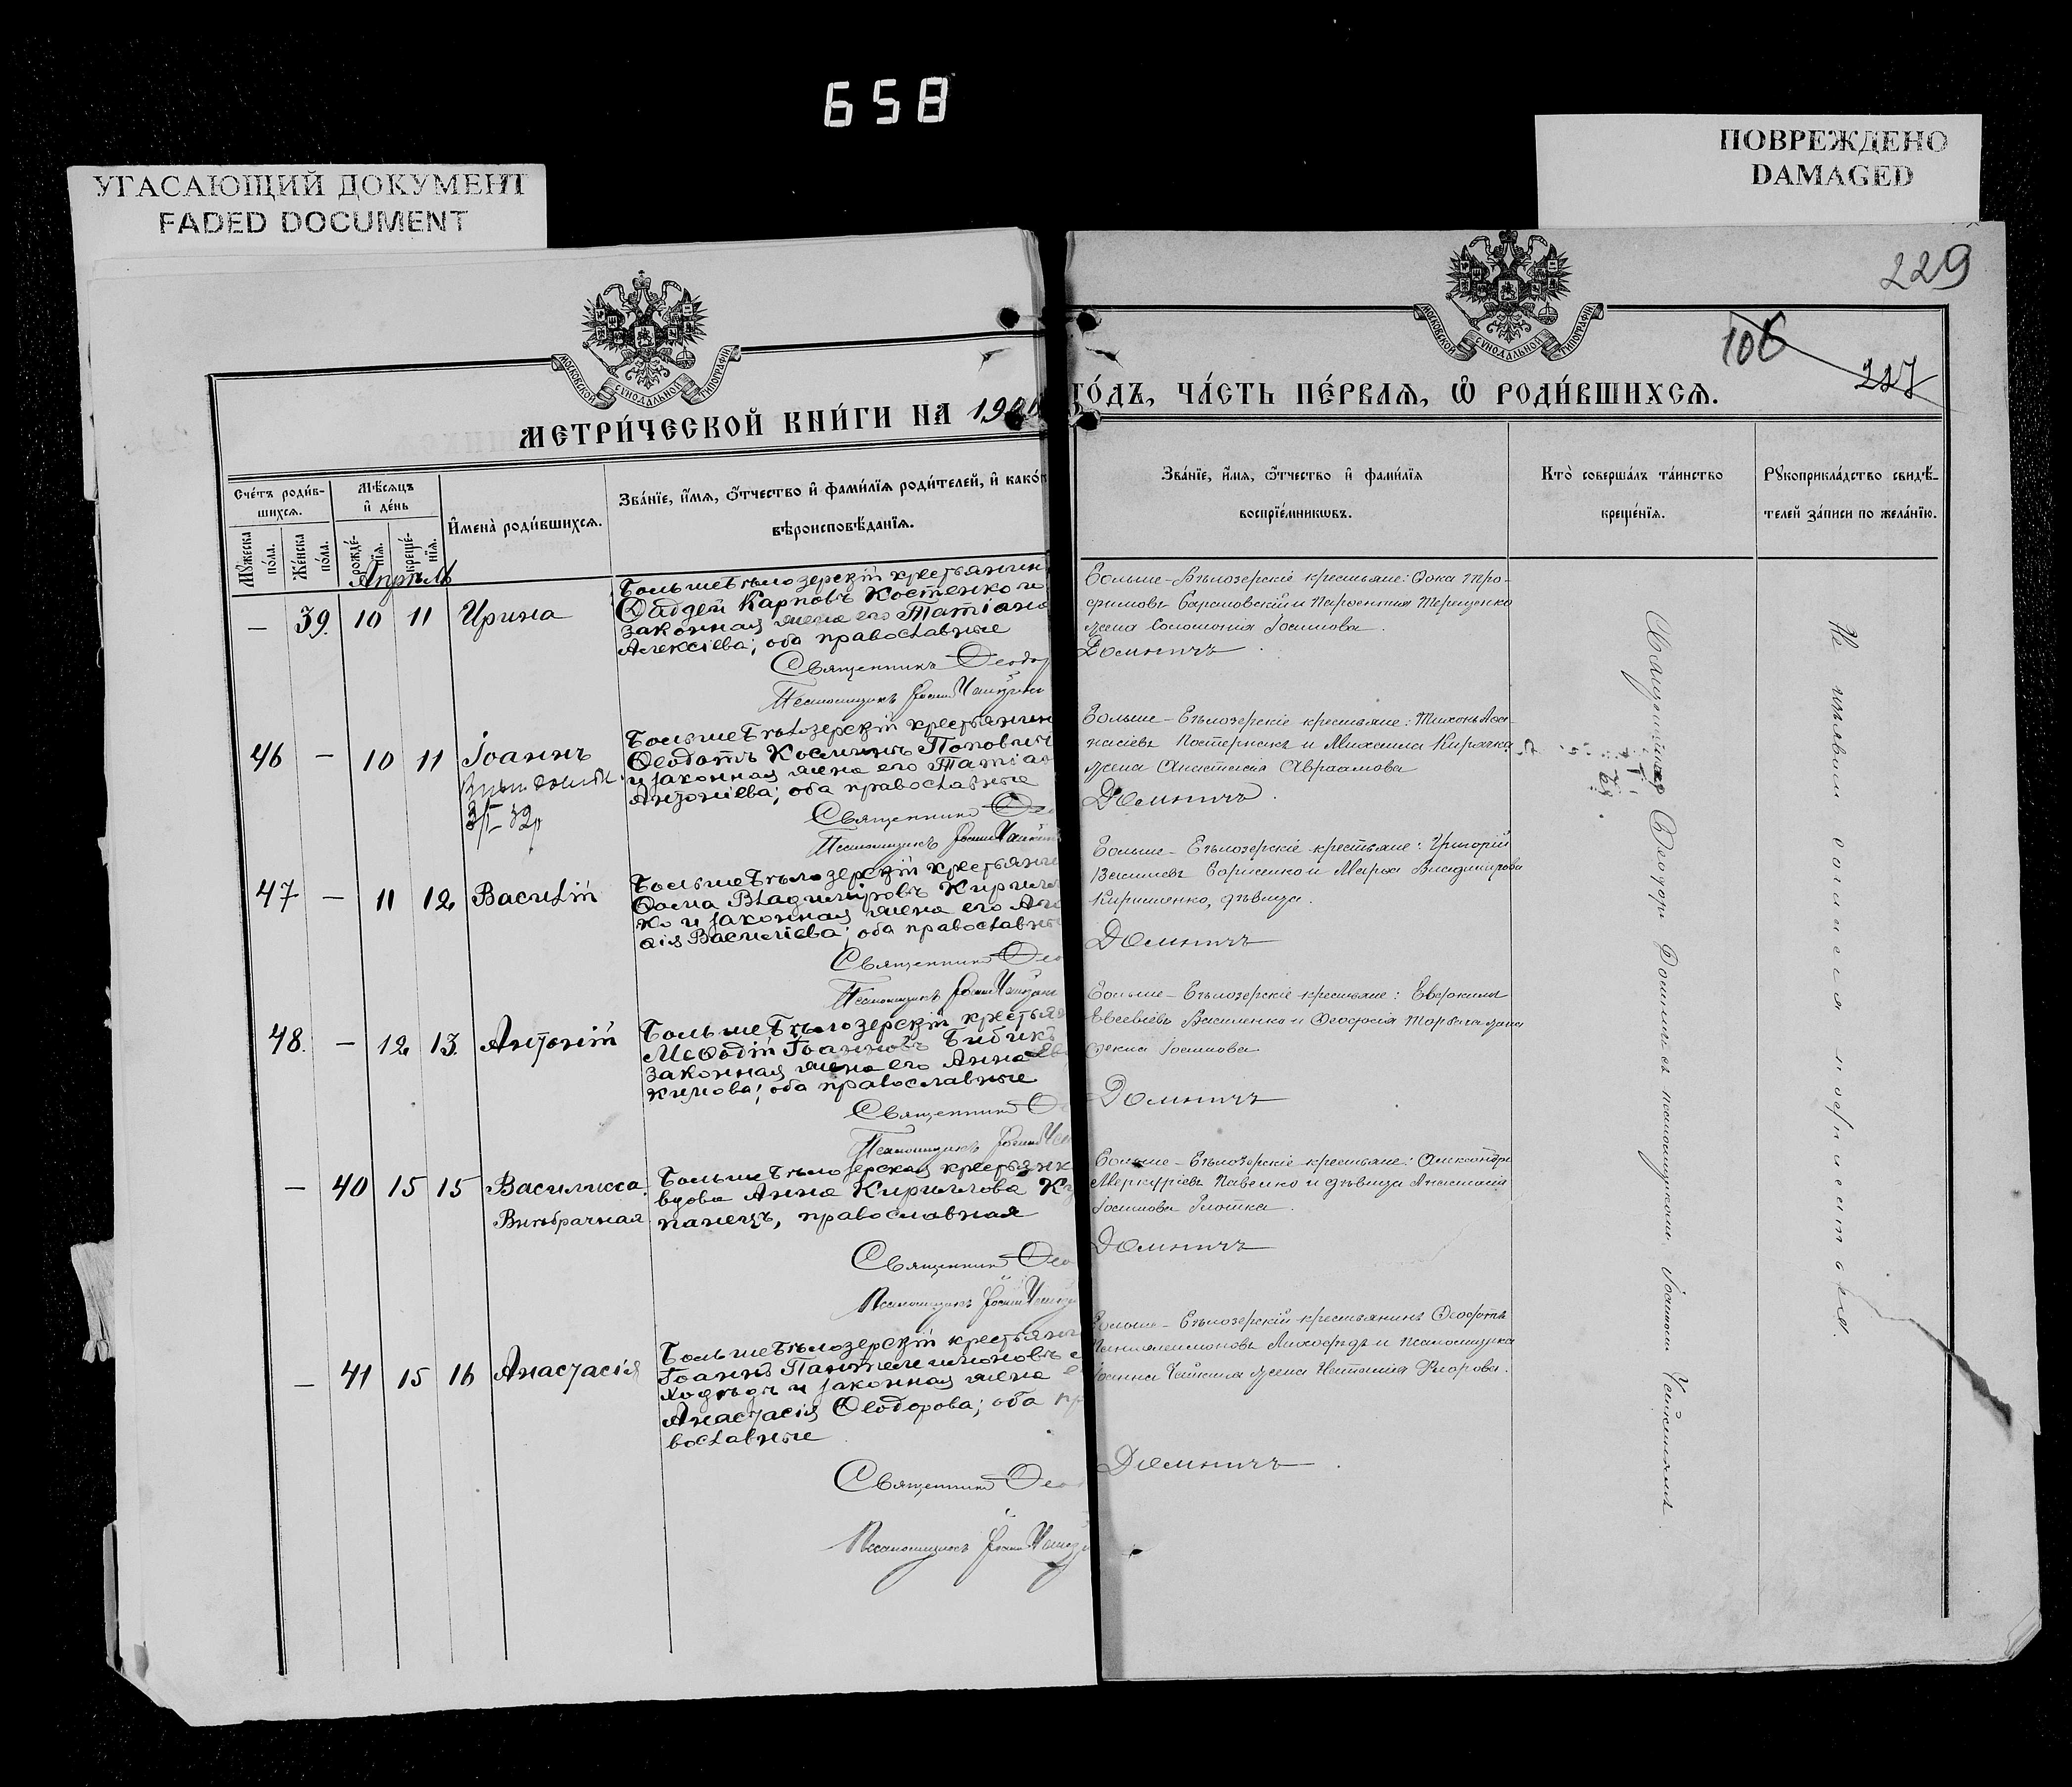 658
УГАСАЮЩИЙ ДОКУМЕНТ
FADED DOCUMENT
ПОВРЕЖДЕНО
DAMAGED
229
106
227
МОСКОВСКОЙ СѴНОДАЛЬНОЙ ТИПОГРАФІИ
МОСКОВСКОЙ СѴНОДАЛЬНОЙ ТИПОГРАФІИ
МЕТРИ́ЧЕСКОЙ КНИ́ГИ НА 190
ГО́ДЪ, ЧА́СТЬ ПЕ́РВАѦ, Ѽ РОДИ́ВШИХСѦ.
Сче́тъ роди́в-
шихсѧ.
Мꙋжеска по́ла.
Же́нска по́ла.
Мѣ́сѧцъ
и҆ де́нь
рожде́-нїѧ.
креще́-нїѧ.
И҆мена̀ роди́вшихсѧ.
Зва́нїе, и҆́мѧ, ѻ҆́тчество и҆ фами́лїѧ роди́телей, и҆ како́г
вѣроисповѣ́данїѧ.
Зва́нїе, и҆́мѧ, ѻ҆́тчество и҆ фами́лїѧ
воспрїе́мникѡвъ.
Кто̀ соверша́лъ та́инство
креще́нїѧ.
Рꙋкоприкла́дство свидѣ́-
телей за́писи по жела́нїю.
Апрѣль
— 39. 10 11 Ирина
Большебѣлозерскій крестьянин
Ѳаддей Карповъ Костенко и
законная жена его Татіана
Алексіева; оба православные
Священникъ Ѳеодор
Псаломщикъ Іоаннъ Чайкин
Больше-Бѣлозерскіе крестьяне: Ѳока Тро-
фимовъ Сарановскій и Парѳенія Терещенко
жена Соломонія Іоаннова.
Доминичъ
46 — 10 11 Іоаннъ
3/I-32г
Большебѣлозерскій крестьянин
Ѳеодотъ Косминъ Попович
и законная жена его Татіан
Антоніева; оба православные
Священникъ Ѳео
Псаломщикъ Іоаннъ Чайкин
Больше-Бѣлозерскіе крестьяне: Тихонъ Аѳа-
насіевъ Пастернакъ и Михаила Кирячка
жена Анастасія Авраамова
Доминичъ
47 — 11 12 Василій
Большебѣлозерскій крестьяни
Ѳома Владиміровъ Кирилен
ко и законная жена его Ана
сія Василіева; оба православны
Священникъ Ѳео
Псаломщикъ Іоаннъ Чайкин
Больше-Бѣлозерскіе крестьяне: Григорій
Васильевъ Борисенко и Марѳа Владимірова
Кириленко, дѣвица.
Доминичъ
48. — 12 13 Антоній
Большебѣлозерскій крестьян
Меѳодій Іоанновъ Бибикъ
законная жена его Анна Ев
кимова; оба православные
Священникъ Ѳ
Псаломщикъ Іоаннъ Чай
Больше-Бѣлозерскіе крестьяне: Евфимій
Евсевіевъ Василенко и Ѳеодосія
Ѳекла Іоаннова
Доминичъ
— 40 15 15 Василисса
Внѣбрачная
Большебѣлозерская крестьянк
вдова Анна Кириллова К
панецъ, православная
Священникъ Ѳео
Псаломщикъ Іоаннъ Чайкин
Больше-Бѣлозерскіе крестьяне: Александръ
Меркуріевъ Павенко и дѣвица Анастасія
Іоаннова Плотка.
Доминичъ
— 41 15 16 Анастасія
Большебѣлозерскій крестьяни
Іоаннъ Пантелеимоновъ
ходѣдъ и законная жена е
Анастасія Ѳеодорова; оба пр
вославные
Священникъ Ѳео
Псаломщикъ Іоаннъ Чайк
Больше-Бѣлозерскій крестьянинъ Ѳеодотъ
Пантелеимоновъ Лиходѣдъ и псаломщика
Іоанна Чайкина жена Наталія Флорова.
Доминичъ
Священникъ Ѳеодоръ Доминичъ съ псаломщикомъ Іоанномъ Чайкинымъ.
Не изъявили согласія